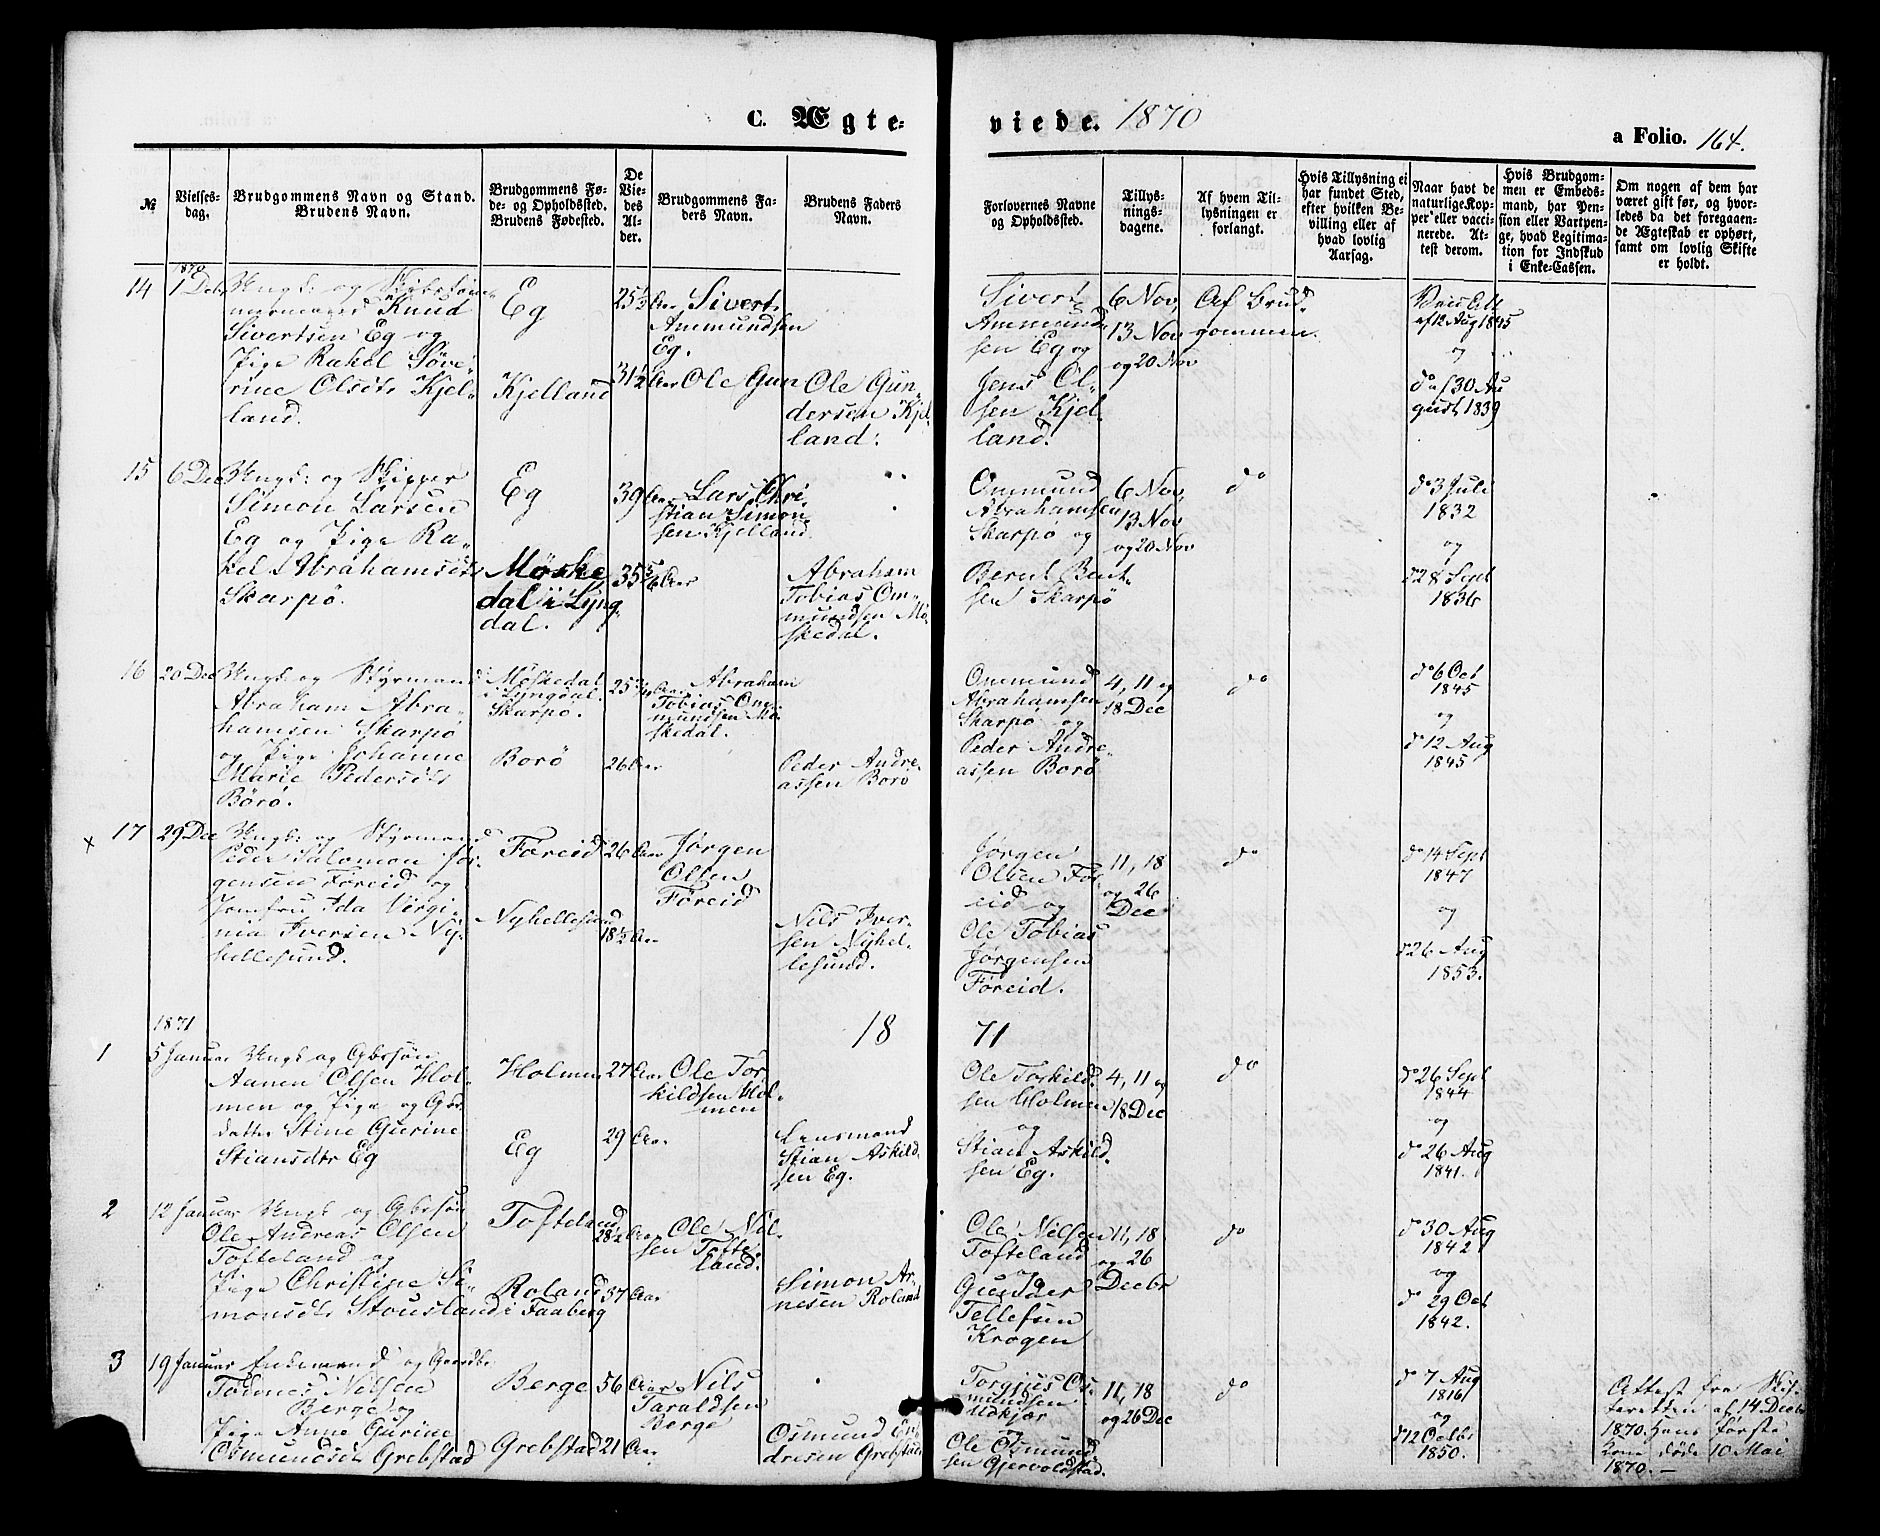 C. Ægte-
viede. 1870
a Folio. 164.
№
Vielses-
dag.
Brudgommens Navn og Stand.
Brudens Navn.
Brudgommens Fø-
de- og Opholdssted.
Brudens Fødested.
De
Vie-
des
Al-
der.
Brudgommens Fa-
ders Navn.
Brudens Faders
Navn.
Forlovernes Navne
og Opholdssted.
Tillys-
nings-
dagene.
Af hvem Til-
lysningen er
forlangt.
Hvis Tillysning ei
har fundet Sted,
efter hvilken Be-
villing eller af
hvad lovlig
Aarsag.
Naar havt de
naturlige Kop-
per eller vacci-
nerede. At-
test derom.
Hvis Brudgom-
men er Embeds-
mand, har Pen-
sion eller Vartpen-
ge, hvad Legitima-
tion for Indskud
i Enke-Cassen.
Om nogen af dem har
været gift før, og hvor-
ledes da det foregaaen-
de Ægteskab er ophørt,
samt om lovlig Skifte
er holdt.
14
1870
1 Debr
Ungk: og
Knud
Sivertsen Eg og
Pige Rakel Søve-
rine Olsdtr Kjel-
land.
Eg
Kjelland
25½ Aar
31½ Aar
Sivert
Ammundsen
Eg.
Ole Gun
Ole Gun-
dersen Kjel-
land.
Sivert
Ammund-
sen Eg og
Jens Ol-
sen Kjel-
land.
6 Nov,
13 Nov
og 20 Nov
Af Brud-
gommen.
af 12 Aug 1845
og
do af 30 Au
gust 1839
15
6 Dec
Ungk: og Skipper
Simon Larsen
Eg og Pige Ra-
kel Abrahamsdtr
Skarpø.
Eg
Møske
dal i Lyng
dal.
39 Aar
35 Aar
Lars Chri
stian Simon-
sen Kjelland.
Abraham
Tobias Om-
mundsen Mø-
skedal.
Ommund
Abrahamsen
Skarpø og
Bernt Bent-
sen Skarpø
6 Nov,
13 Nov
og 20 Nov
do
do 3 Juli
1832
og
do 28 Sept
1836
16
20 Dec
Ungk: og Styrmand
Abraham Abra-
hamsen Skarpø
og Pige Johanne
Marie Pedersdtr
Børø.
Møskedal
i Lyngdal.
Skarpø.
Borø
25 Aar
26 Aar
Abraham
Tobias Om-
mundsen Mø-
skedal.
Peder Andre-
assen Borø
Ommund
Abrahamsen
Skarpø og
Peder Andre-
assen Borø
4, 11 og
18 Dec
do
do 6 Oct
1845
og
do 12 Aug
1845
x 17
29 Dec
Ungk: og Styrmand
Peder Salomon Jør-
gensen Føreid og
Jomfru Ida Virgi-
nia Iversen Ny-
hellesund.
Føreid
Nyhellesund
26 Aar
18½ Aar
Jørgen
Olsen
Føreid
Nils Iver-
sen Nyhel-
lesund.
Jørgen
Olsen Fø-
reid og
Ole Tobias
Jørgensen
Føreid.
11, 18
og 26
Dec
do
do 14 Sept
1847
og
do 26 Aug
1853.
1871
18 71
1
5 Januar
Ungk og Gbrsøn
Aanen Olsen Hol-
men og Pige og Gbr
datter Stine Gurine
Stiansdtr Eg
Holmen
Eg
27 Aar
29 Aar
Ole Tor
kildsen Hol-
men
Lensmand
Stian Askild-
sen Eg.
Ole Torkild-
sen Holmen
og
Stian Askild-
sen Eg.
4, 11 og
18 Dec
do
do 26 Sept
1844
og
do 26 Aug
1841.
2
12 Januar
Ungk og Gbrsøn
Ole Andreas Olsen
Tofteland og
Pige Christine Si-
monsdtr Stousland
Tofteland
Roland
i Faaberg
28½ Aar
37 Aar
Ole Nil-
sen Tofte-
land.
Simon Ar-
nesen Roland
Ole Nilsen
Tofteland
og
Gunder
Tellefsen
Krogen
11, 18
og 26
Decbr
do
do 30 Aug
1842
og
do 29 Oct
1842.
3
19 Januar
Enkemand og Gaardbr
Tønnes Nilsen
Berge og
Pige Anne Gurine
Osmundsdtr Grebstad
Berge
Grebstad
56 Aar
21 Aar
Nils
Taraldsen
Berge
Osmund En-
dresen Grebstad
Torgjus Os-
mundsen
Udkjær
og
Ole Osmund-
sen Gjervoldstad.
11, 18
og 26 Dec
do
do 7 Aug
1816
og
do 12 Octbr
1850.
Attest fra Skif-
teretten af 14 Decbr
1870. Hans første
Kone døde 10 Mai
1870. —